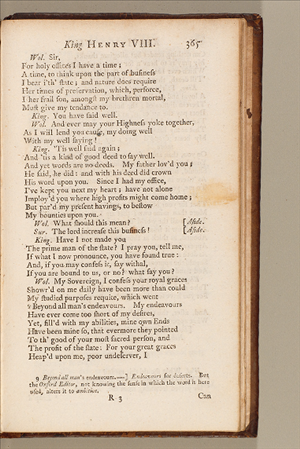 King HENRY VIII. 365
Wol. Sir,
For holy offices I have a time;
A time, to think upon the part of business
I bear i'th' state; and nature does require
Her times of preservation, which, perforce,
I her frail son, amongst my brethren mortal,
Must give my tendance to.
King. You have said well.
Wol. And ever may your Highness yoke together,
As I will lend you cause, my doing well
With my well saying!
King. 'Tis well said again;
And 'tis a kind of good deed to say well.
And yet words are no deeds. My father lov'd you;
He said, he did: and with his deed did crown
His word upon you. Since I had my office,
I've kept you next my heart; have not alone
Imploy'd you where high profits might come home;
But par'd my present havings, to bestow
My bounties upon you.
Wol. What should this mean? [Aside.
Sur. The lord increase this business! [Aside.
King. Have I not made you
The prime man of the state? I pray you, tell me,
If what I now pronounce, you have found true:
And, if you may confess it, say withal,
If you are bound to us, or no? what say you?
Wol. My Sovereign, I confess your royal graces
Showr'd on me daily have been more than could
My studied purposes require, which went
9 Beyond all man's endeavours. My endeavours
Have ever come too short of my desires,
Yet, fill'd with my abilities, mine own Ends
Have been mine so, that evermore they pointed
To th' good of your most sacred person, and
The profit of the state: For your great graces
Heap'd upon me, poor undeserver, I
9 Beyond all man's endeavours.—] Endeavours for deserts. But
the Oxford Editor, not knowing the sense in which the word is here
used, alters it to ambition.
R 3 Can